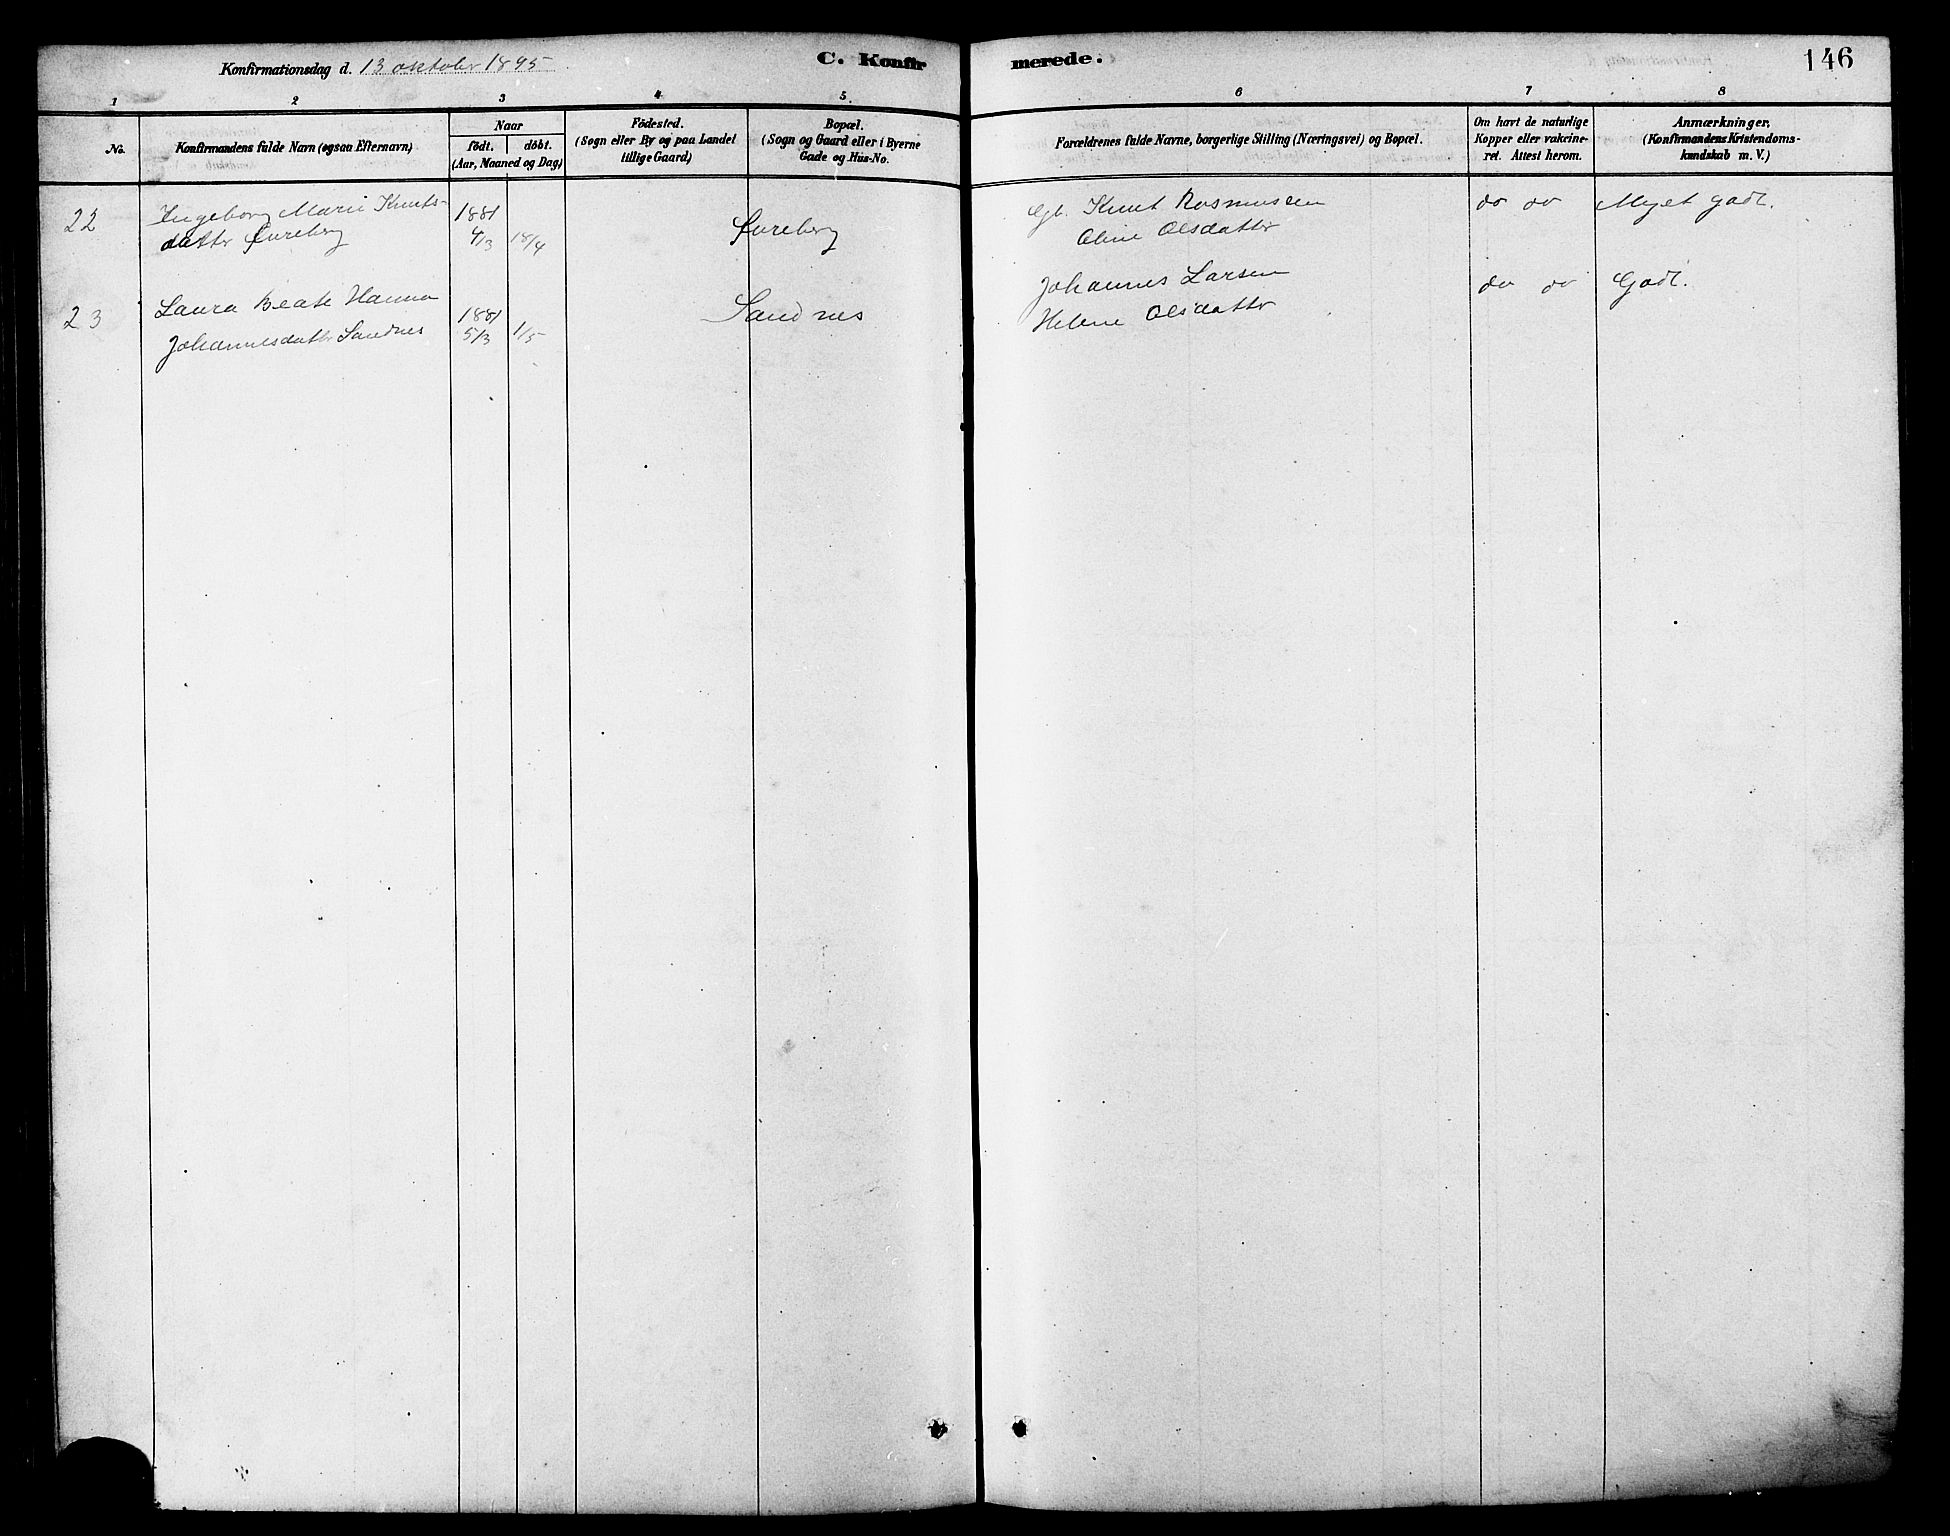 Konfirmationsdag d. 13 oktober 1895
C. Konfirmerede.
146
1 2 3 4 5 6 7 8
No.
Konfirmandens fulde Navn (ogsaa Efternavn)
Naar
födt. döbt.
(Aar, Maaned og Dag)
Födested.
(Sogn eller By og paa Landet
tillige Gaard)
Bopæl.
(Sogn og Gaard eller i Byerne
Gade og Hus-No.
Forældrenes fulde Navne, borgerlige Stilling (Næringsvei) og Bopæl.
Om havt de naturlige
Kopper eller vakcine-
ret. Attest herom.
Anmærkninger,
(Konfirmandens Kristendoms-
kundskab m. V.)
22 Ingeborg Marie Knuts- 1881 Gbr. Knut Rasmussen do do Meget godt.
datter Øvreberg 4/3 18/4 Øvreberg Oline Olsdatter
23 Laura Beate Hanna 1881 Sandnes Johannes Larsen do do Godt.
Johannesdatter Sandnes 5/3 1/5 Helene Olsdatter